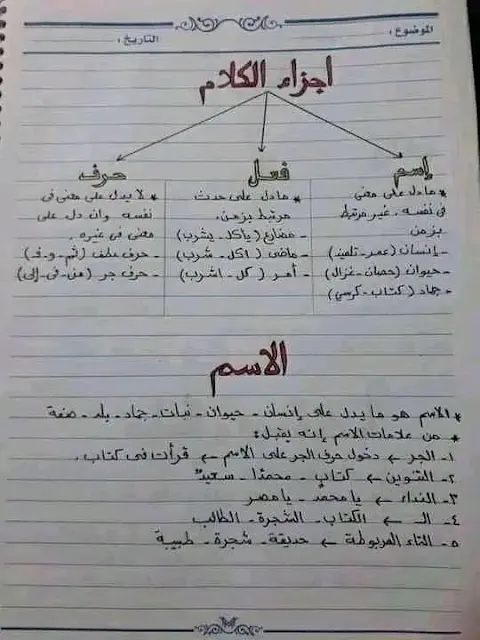 الموضوع :
التاريخ :
أجزاء الكلام
إسم
* ما دل على معنى
فى نفسه. غير مرتبط
بزمن
- إنسان (عمر - تلميذ)
- حيوان (حصان - غزال)
- جماد (كتاب - كرسي)
فعل
* ما دل على حدث
مرتبط بزمن.
- مضارع (يأكل - يشرب)
- ماضى (أكل - شرب)
- أمر (كل - اشرب)
حرف
* لا يدل على معنى فى
نفسه وان دل على
معنى فى غيره.
- حرف عطف (ثم - و - ف)
- حرف جر (من - فى - إلى)
الاسم
* الاسم هو ما يدل على إنسان - حيوان - نبات - جماد - بلد - صفة
* من علامات الاسم إنه يقبل :
١- الجر ← دخول حرف الجر على الاسم ← قرأت فى كتاب.
٢- التنوين ← كتاب - محمدًا - سعيدٌ
٣- النداء ← يا محمد - يا مصر
٤- الـ ← الكتاب - الشجرة - الطالب
٥- التاء المربوطة ← حديقة - شجرة - طبيبة